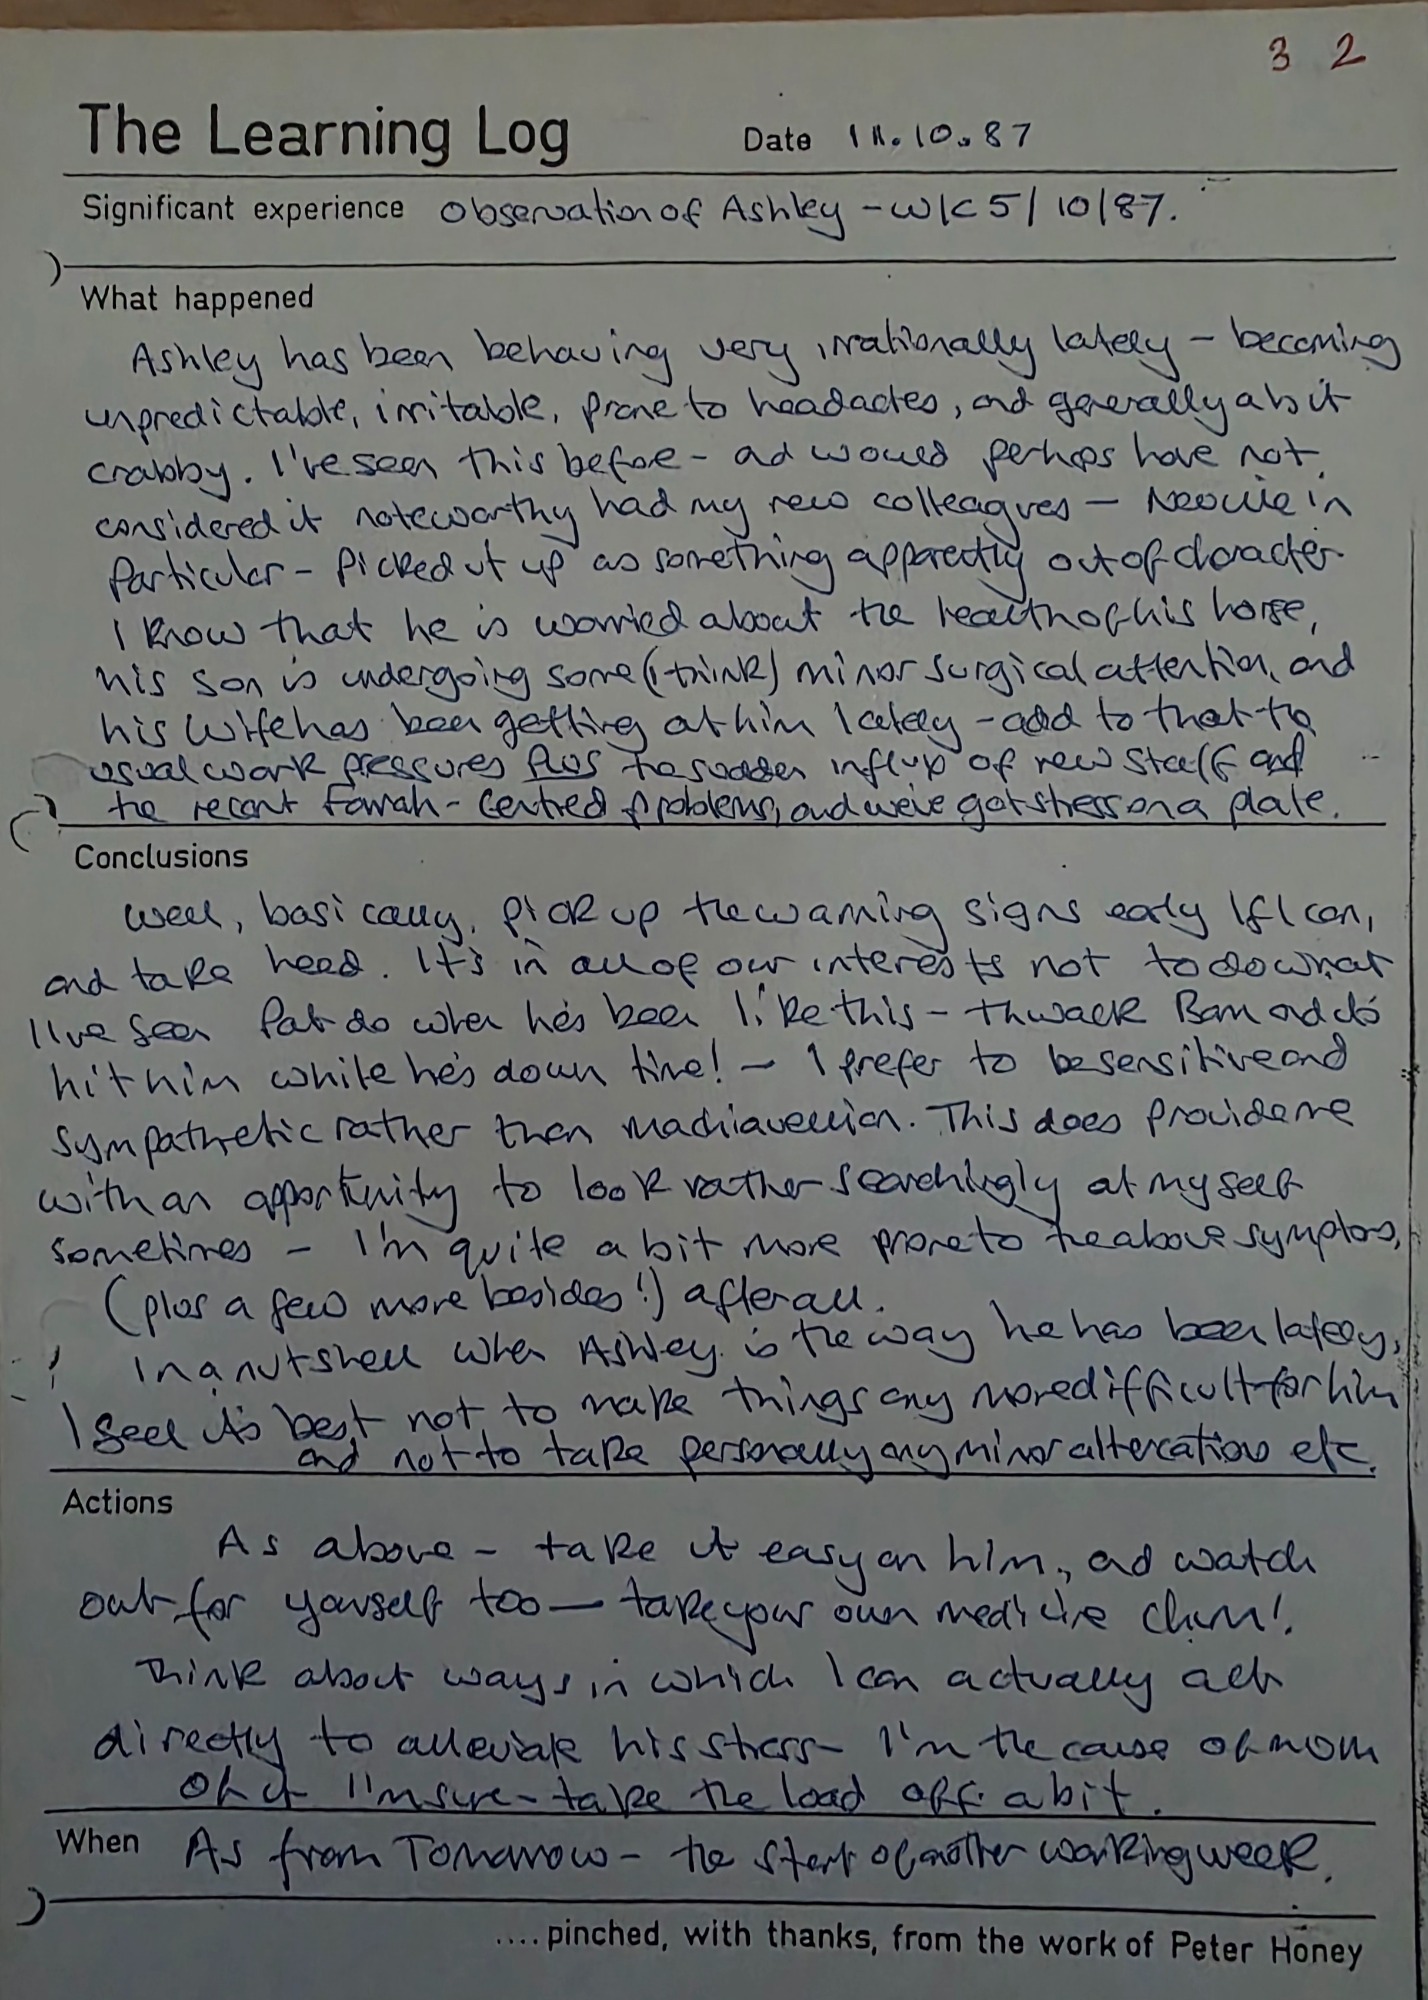 3 2
The Learning Log Date 11.10.87
Significant experience Observation of Ashley - w/c 5/10/87.
What happened
Ashley has been behaving very irrationally lately - becoming
unpredictable, irritable, prone to headaches, and generally a bit
crabby. I've seen this before - and would perhaps have not
considered it noteworthy had my new colleagues - in
Particular - Picked it up as something apparently out of character.
I know that he is worried about the health of his horse,
his son is undergoing some (I think) minor surgical attention, and
his wife has been getting at him lately - add to that the
usual work pressures plus the sudden influx of new staff and
the recent Farrah-centred problems, and we've got stress on a plate.
Conclusions
Well, basically, pick up the warning signs early if I can,
and take heed. It's in all of our interests not to do what
I've seen Pat do when he's been like this - thwack Bam and it's
hit him while he's down time! - I prefer to be sensitive and
sympathetic rather than machiavellian. This does provide me
with an opportunity to look rather searchingly at myself
sometimes - I'm quite a bit more prone to the above symptoms,
(plus a few more besides!) after all.
In a nutshell when Ashley is the way he has been lately,
I feel it's best not to make things any more difficult for him
and not to take personally any minor altercations etc.
Actions
As above - take it easy on him, and watch
out for yourself too - take your own medicine chum!.
Think about ways in which I can actually act
directly to alleviate his stress - I'm the cause of
of it I'm sure - take the load off a bit.
When As from Tomorrow - the start of another working week.
.... pinched, with thanks, from the work of Peter Honey